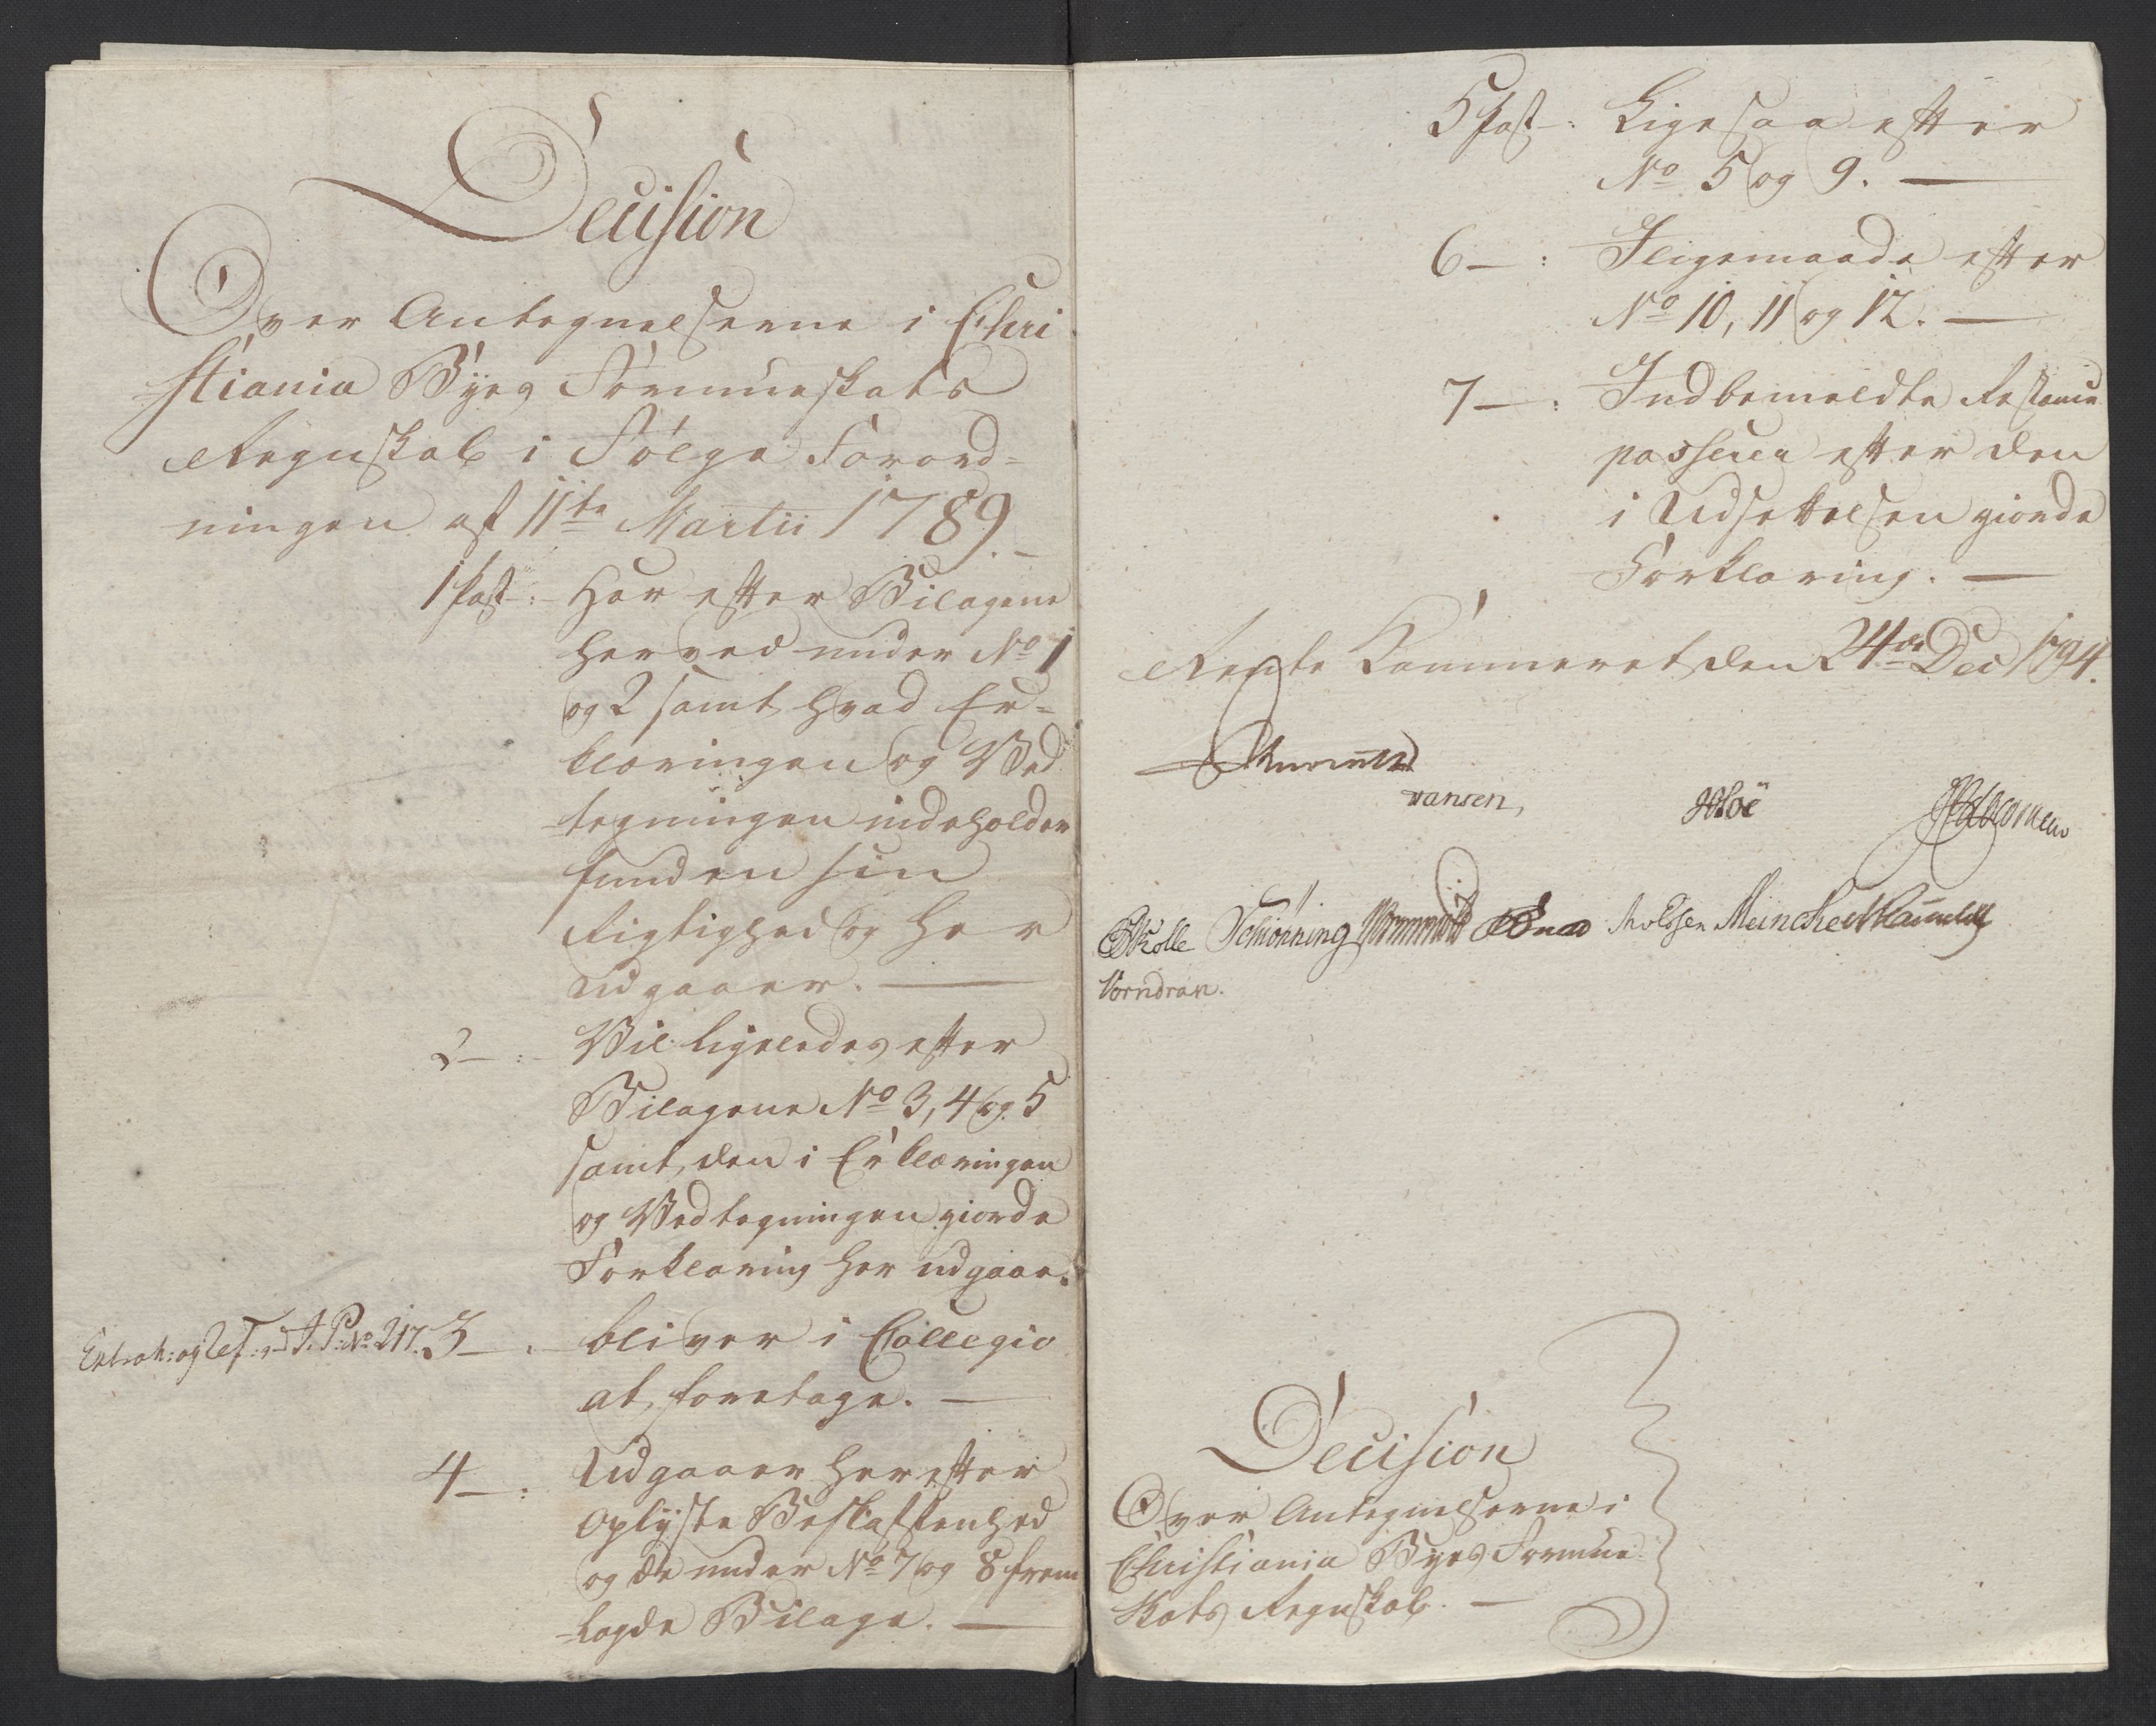 Decision
Over Antegnelserne i Chri
stiania Byes Formueskats
Regnskab i Følge Forord=
ningen af 11te Martii 1789.
1 Post: Har efter Bilagene
herved under No 1
og 2 samt hvad Er=
klæringen og Ved
tegningen indeholder
funden sin
Rigtighed og her
udgaaer.
2 — : Vil ligeledes efter
Bilagene No 3, 4 og 5
samt den i Erklæringen
og Vedtegningen giorde
Forklaring her udgaae.
Extrah: og No 217. 3 — : bliver i Collegio
at foretage.
4 — : Udgaaer her efter
Oplyste Beskaffenhed
og de under No 7 og 8 frem
lagde Bilage.
5 Post: Ligesaa efter
No 5 og 9.
6 — : Iligemaade efter
No 10, 11 og 12.
7 — : Indbemeldte Restance
passerer efter den
i Udsettelsen giorde
Forklaring.
Rente Kammeret den 24de Dec 1794.
Schiønning Meincke
Vorndran.
Decision
Over Antegnelserne i
Christiania Byes Formue
Skats Regnskab.